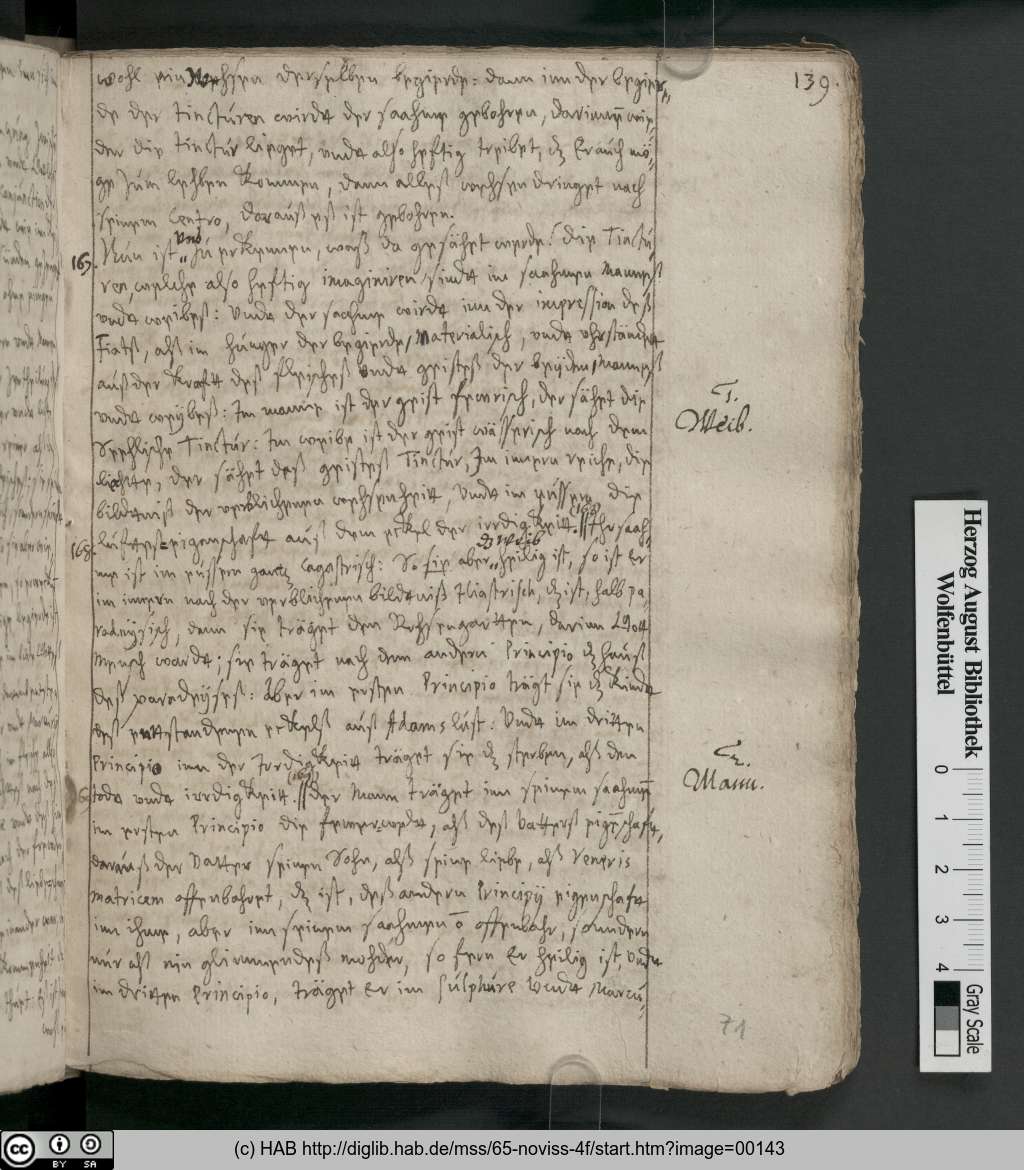 139.
wohl ein Wechsen derselben begierde: dann inn der begier„
de der tincturen wirdt der saahme gebohren, darinnē wie„
der die tinctur lieget, undt also hefftig treibet, dz Er auch mö„
ge zum lehben kommen, dann alleß wehsen dringet nach
seinem Centro, darauß eß ist gebohren.
167. Nun ist und zu erkennen, waß da gesähet werde: die Tinctu„
ren, welche also hefftig imaginiren, sindt im saahmen Manneß
undt weibeß: Undt der saahme wirdt inn der impression deß
Fiats, alß im hunger der begierde, Materialisch, undt uhrständet
auß der krafft deß fleischeß undt geisteß der beyden, Manneß
undt weybeß: Im manne ist der geist feurisch, der sähet die
Seehlische Tinctur: Im weibe ist der geist wässerisch nach dem
liechte, der sähet deß geisteß Tinctur, Im innern reiche, die
bildtniß der verblichenen wehsenheit, Undt im eüssern die
lufftes-eigenschafft auß dem eckel der irrdigkeit. (168) Ihr saah„
168. me ist im eüssern gantz cagastrisch: So sie aber dz Weib heilig ist, so ist er
im innern nach der verblichenen bildtniß Iliastrisch, dz ist, halb pa„
radeysisch, denn sie träget den Rohsengartten, darinn Gott
Mensch wardt; sie träget nach dem andern Principio dz hauß
deß paradeyses: Aber im ersten Principio trägt sie dz Kindt
deß entstandenen eckels auß Adams lust: Undt im dritten
Principio inn der Irrdigkeit träget sie dz sterben, alß den
todt undt irrdigkeit. (169) der Mann träget inn seinem saahmē
im ersten Principio die feuer-welt, alß deß Vatters eigēschafft,
darauß der Vatter seinen Sohn, alß seine liebe, alß Veneris
matricem offenbahret, dz ist, deß andern Principij eigenschafft
inn ihme, aber inn seinem saahmen ō offenbahr, sonndern
nur alß ein glimmendeß mohder, so fern Er heilig ist, Undt
im dritten Principio, träget er im Sulphure Undt Marcu„
1.
Weib.
2.
Mann.
71
Herzog August Bibliothek
Wolfenbüttel
0 1 2 3 4
Gray Scale
cc BY SA
(c) HAB http://diglib.hab.de/mss/65-noviss-4f/start.htm?image=00143